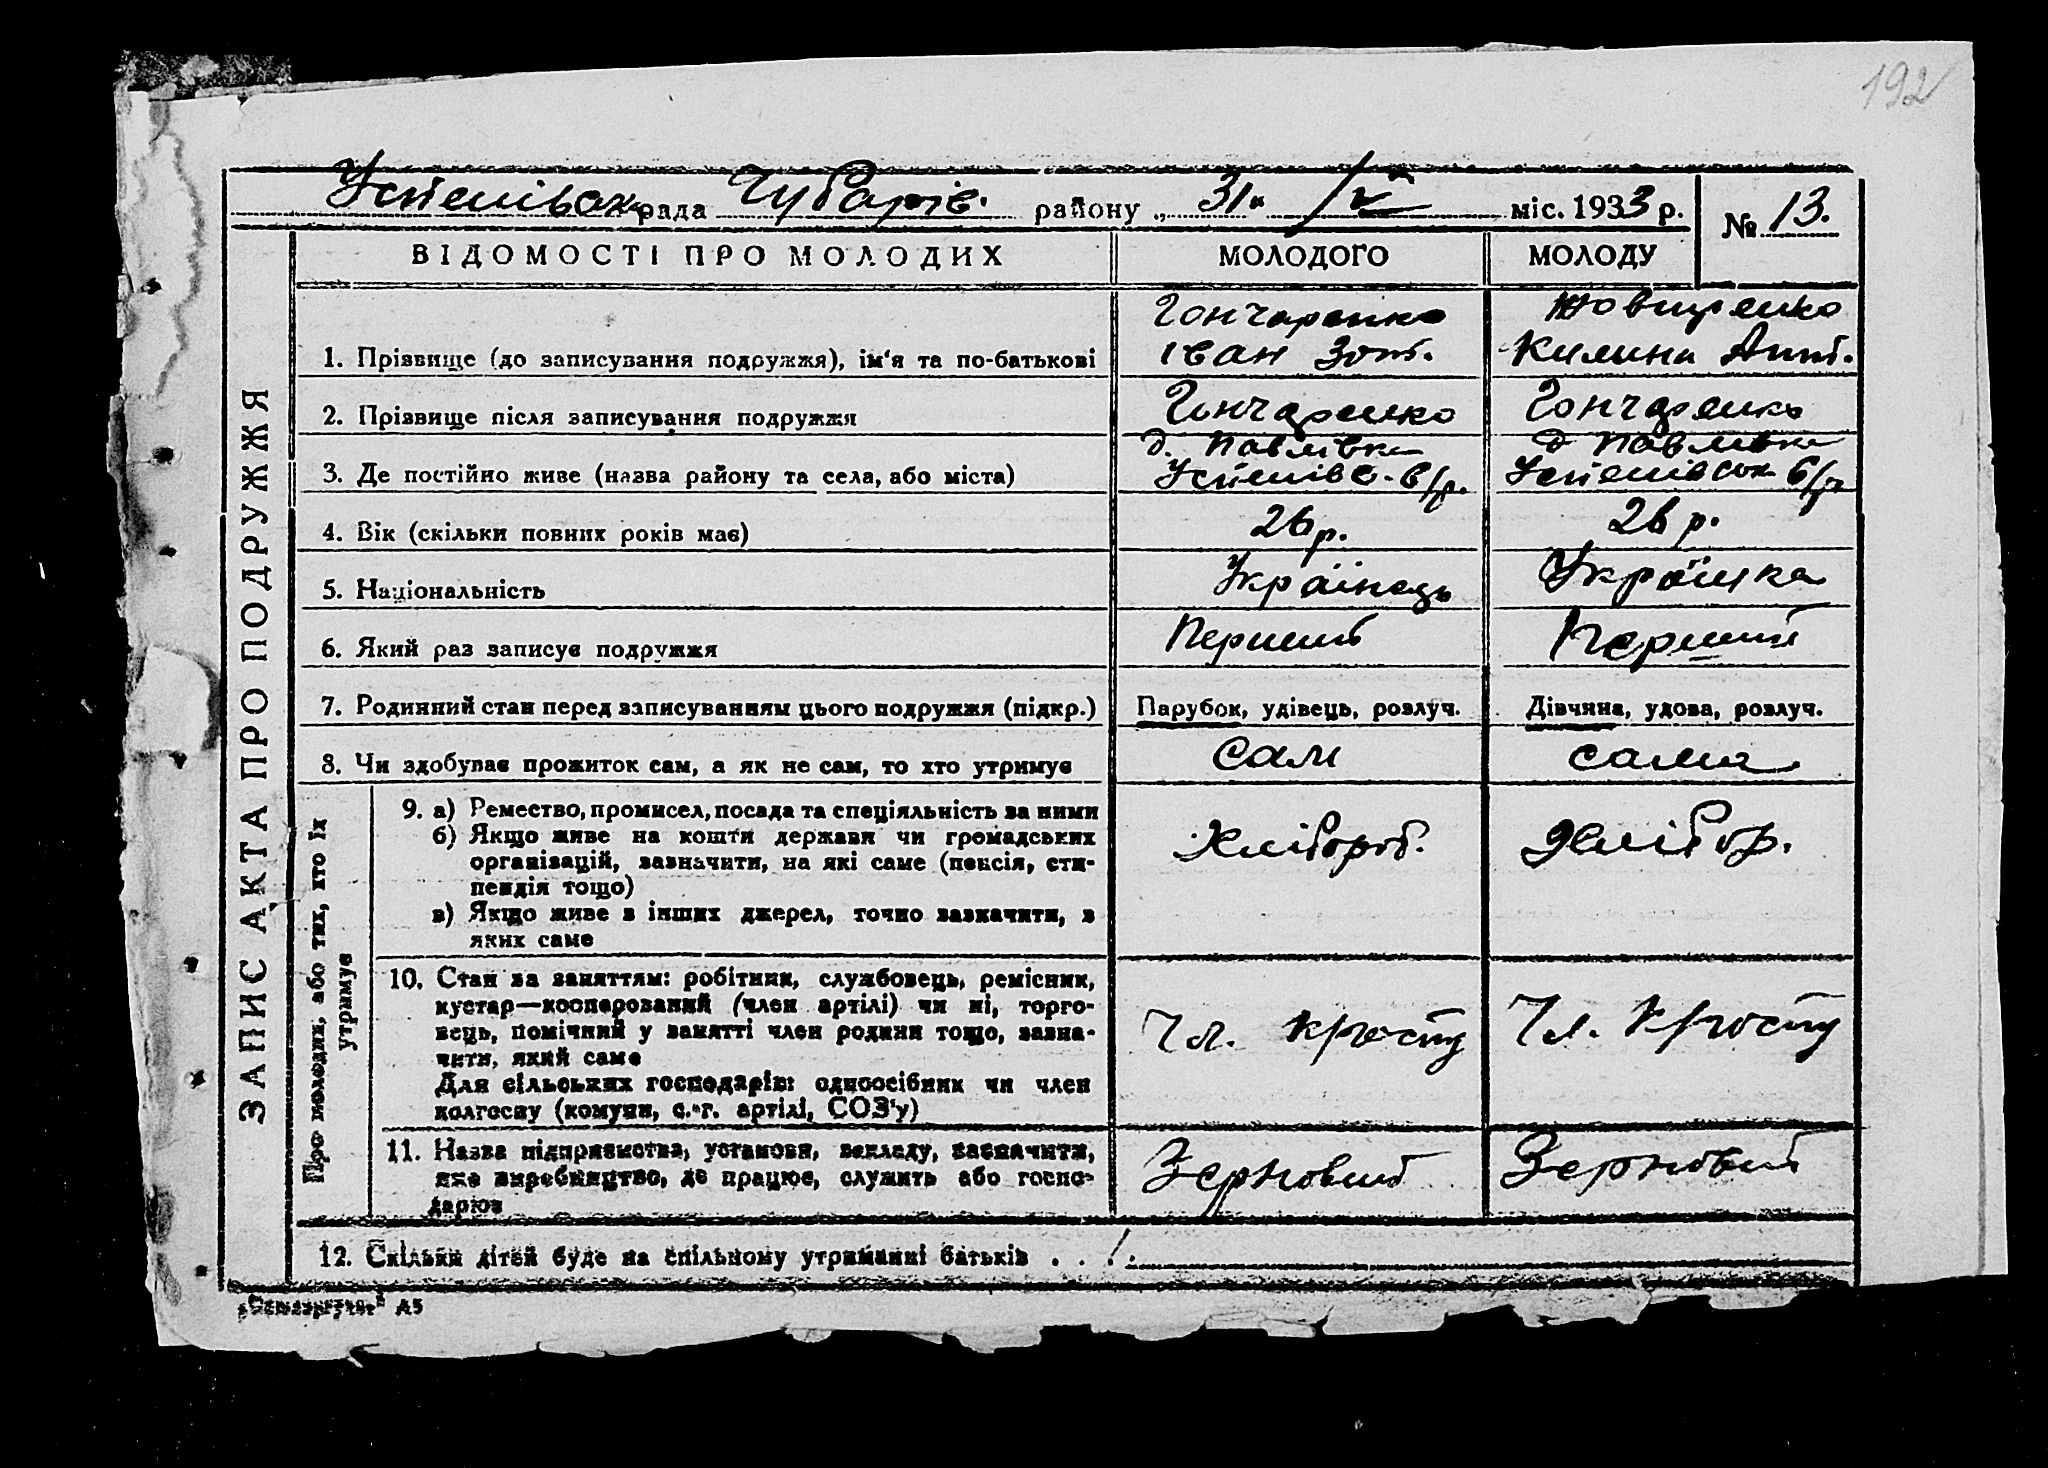 192
Успенівськ рада Чубарів. району „31“ /V міс. 1933 р. № 13.
ЗАПИС АКТА ПРО ПОДРУЖЖЯ
ВІДОМОСТІ ПРО МОЛОДИХ МОЛОДОГО МОЛОДУ
Гончаренко
1. Прізвище (до записування подружжя), ім'я та по-батькові Іван Зот. Килина Ант.
2. Прізвище після записування подружжя Гончаренко Гончаренко
д. Павлівка д Павлівка
3. Де постійно живе (назва району та села, або міста) Успенівс. с/р. Успенівськ с/р
4. Вік (скільки повних років має) 26 р. 26 р.
5. Національність Українець Українка
6. Який раз записує подружжя Перший Перший
7. Родинний стан перед записуванням цього подружжя (підкр.) Парубок, удівець, розлуч. Дівчина, удова, розлуч.
8. Чи здобуває прожиток сам, а як не сам, то хто утримує Сам сама
Про молодих, або тих, хто їх
утримує
9. а) Ремество, промисел, посада та спеціяльність за ними Хлібороб. Хлібор.
б) Якщо живе на кошти держави чи громадських
організацій, зазначити, на які саме (пенсія, сти-
пендія тощо)
в) Якщо живе з інших джерел, точно зазначити, з
яких саме
10. Стан за заняттям: робітник, службовець, ремісник,
кустар—кооперований (член артілі) чи ні, торго-
вець, помічний у занятті член родини тощо, зазна- Чл. Кргоспу Чл. Кргоспу
чити, який саме
Для сільських господарів: одноосібник чи член
колгоспу (комуни, с.-г. артілі, СОЗ'у)
11. Назва підприємства, установи, закладу, зазначити, Зерновий Зерновий
яке виробництво, де працює, служить або госпо-
дарює
12. Скільки дітей буде на спільному утриманні батьків . . 1.
А5